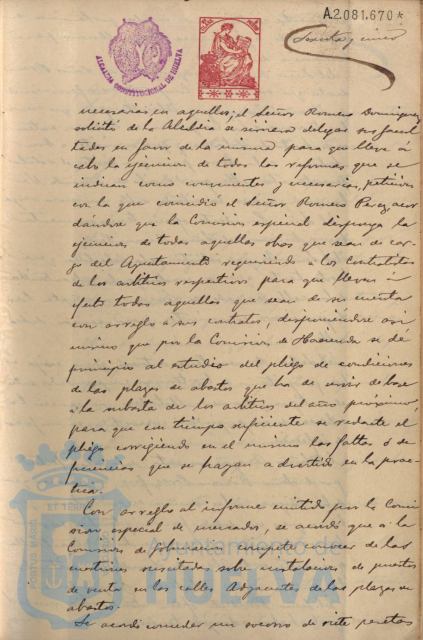 A.2.081.670*
Sesenta y cinco
ALCALDIA CONSTITUCIONAL DE HUELVA
necesarias en aquellos; el Señor Romero Dominguez
solicitó de la Alcaldia se sirviera delegar sus facul
tades en favor de la misma para que lleve á
cabo la ejecucion de todas las reformas que se
indican como convenientes y necesarias, peticion
con la que coincidió el Señor Romero Perez, acor
dandose que la Comision especial disponga la
ejecucion de todas aquellas obras que sean de car
go del Ayuntamiento requiriendo á los Contratistas
de los arbitrios respectivos para que lleven á
efecto todas aquellas que sean de su cuenta
con arreglo á sus contratos, disponiendose asi
mismo que por la Comision de Hacienda se dé
principio al estudio del pliego de condiciones
de las plazas de abastos que ha de servir de base
á la subasta de los arbitrios del año próximo,
para que con tiempo suficiente se redacte el
pliego corrigiendo en el mismo las faltas ó de
ficiencias que se hayan advertido en la prac
tica.
Con arreglo al informe emitido por la Comi
sion especial de mercados, se acordó que á la
Comision de Gobernacion compete conocer de las
cuestiones suscitadas sobre instalacion de puestos
de venta en las calles adyacentes de las plazas de
abastos.
Se acordó conceder un socorro de siete pesetas
PORTUS MARIS ET TERRAE
Ayuntamiento de
HUELVA